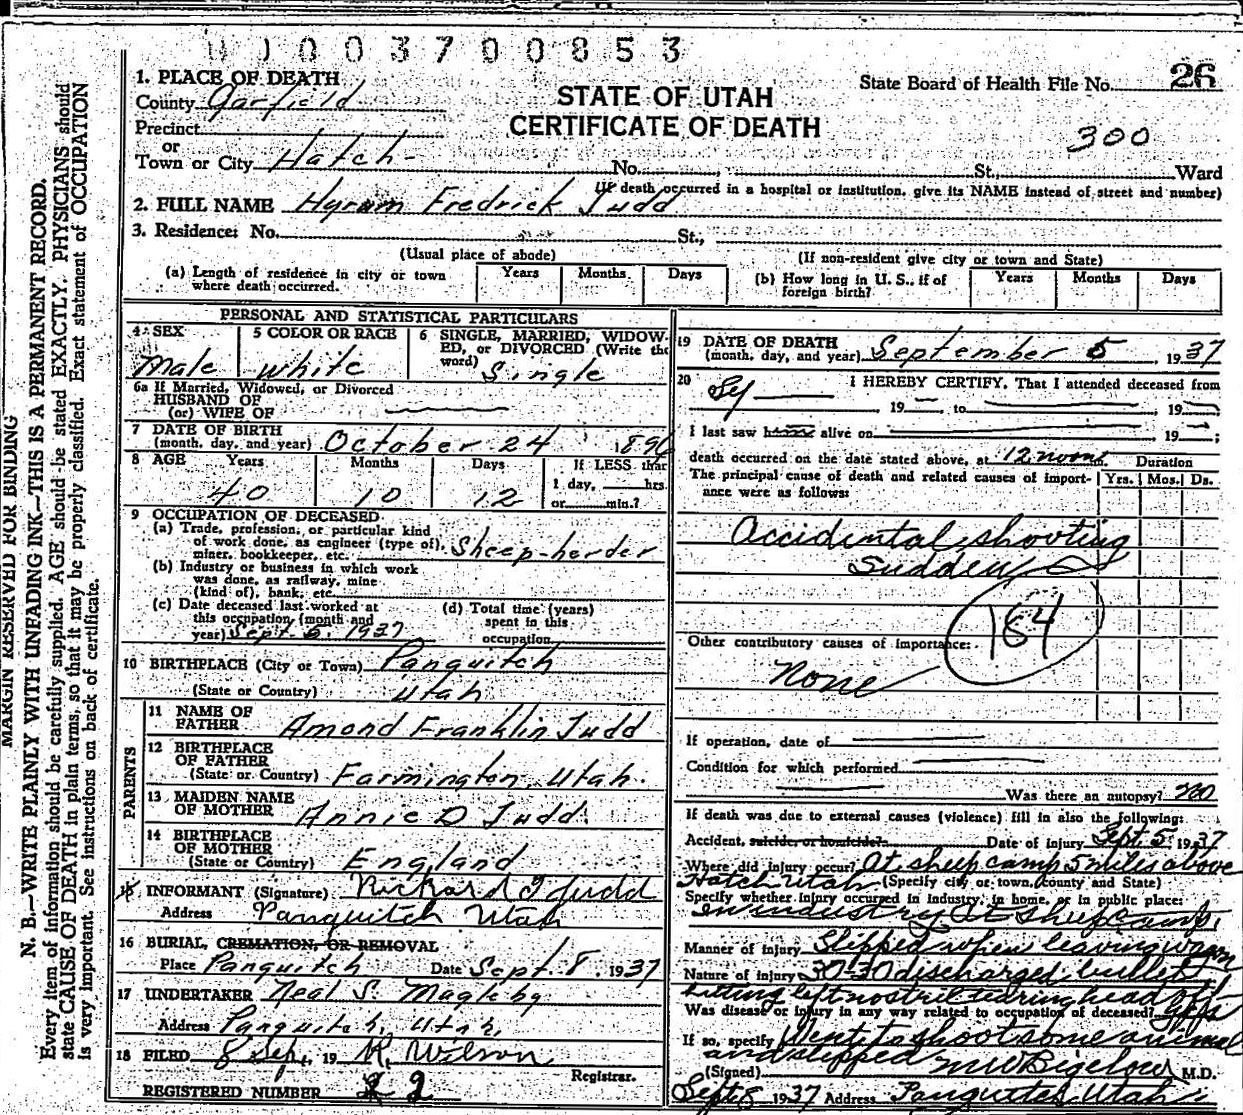 0003700853
1. PLACE OF DEATH
County Garfield
State Board of Health File No. 26
STATE OF UTAH
CERTIFICATE OF DEATH
Precinct
or
300
Town or City Hatch No. St., Ward
(If death occurred in a hospital or institution, give its NAME instead of street and number)
2. FULL NAME Hyrum Fredrick Judd
3. Residence: No. St.,
(Usual place of abode) (If non-resident give city or town and State)
(a) Length of residence in city or town where death occurred. Years Months Days
(b) How long in U. S., if of foreign birth? Years Months Days
PERSONAL AND STATISTICAL PARTICULARS
4. SEX Male
5 COLOR OR RACE White
6 SINGLE, MARRIED, WIDOWED, or DIVORCED (Write the word) Single
6a If Married, Widowed, or Divorced
HUSBAND OF
(or) WIFE OF
7 DATE OF BIRTH
(month, day, and year) October 24 1896
8 AGE Years Months Days If LESS than
40 10 12 1 day, hrs.
or min.?
9 OCCUPATION OF DECEASED
(a) Trade, profession, or particular kind
of work done, as engineer (type of),
miner, bookkeeper, etc. Sheep-herder
(b) Industry or business in which work
was done, as railway, mine
(kind of), bank, etc.
(c) Date deceased last worked at
this occupation (month and
year) Sept. 5, 1937
(d) Total time (years)
spent in this
occupation
10 BIRTHPLACE (City or Town) Panguitch
(State or Country) Utah
PARENTS
11 NAME OF
FATHER Amond Franklin Judd
12 BIRTHPLACE
OF FATHER
(State or Country) Farmington, Utah.
13 MAIDEN NAME
OF MOTHER Annie D Judd.
14 BIRTHPLACE
OF MOTHER
(State or Country) England
15 INFORMANT (Signature) Richard J Judd
Address Panguitch Utah
16 BURIAL, CREMATION, OR REMOVAL
Place Panguitch Date Sept. 8, 1937
17 UNDERTAKER Neal S. Magleby
Address Panguitch, Utah,
18 FILED 8 Sep, 19 K. Wilson
Registrar.
REGISTERED NUMBER 2
19 DATE OF DEATH
(month, day, and year) September 5, 1937
20 I HEREBY CERTIFY, That I attended deceased from
19 , to , 19 ,
I last saw h alive on , 19 ;
death occurred on the date stated above, at 12 noon m.
The principal cause of death and related causes of importance were as follows:
Duration
Yrs. Mos. Ds.
Accidental shooting
Sudden
184
Other contributory causes of importance:
None
If operation, date of
Condition for which performed
Was there an autopsy? no
If death was due to external causes (violence) fill in also the following:
Accident, suicide or homicide? Date of injury Sept. 5, 1937
Where did injury occur? At sheep camp 5 miles above
Hatch Utah (Specify city or town, county and State)
Specify whether injury occurred in industry, in home, or in public place:
In industry At sheep camp.
Manner of injury Slipped when leaving wagon
Nature of injury 30-30 discharged bullet
hitting left nostril tearing head off
Was disease or injury in any way related to occupation of deceased? yes
If so, specify Went to shoot some animal
and slipped
(Signed) M W Bigelow M.D.
Sept 8 1937 Address Panguitch Utah
MARGIN RESERVED FOR BINDING
N. B.—WRITE PLAINLY WITH UNFADING INK—THIS IS A PERMANENT RECORD.
Every item of information should be carefully supplied. AGE should be stated EXACTLY. PHYSICIANS should
state CAUSE OF DEATH in plain terms, so that it may be properly classified. Exact statement of OCCUPATION
is very important. See instructions on back of certificate.